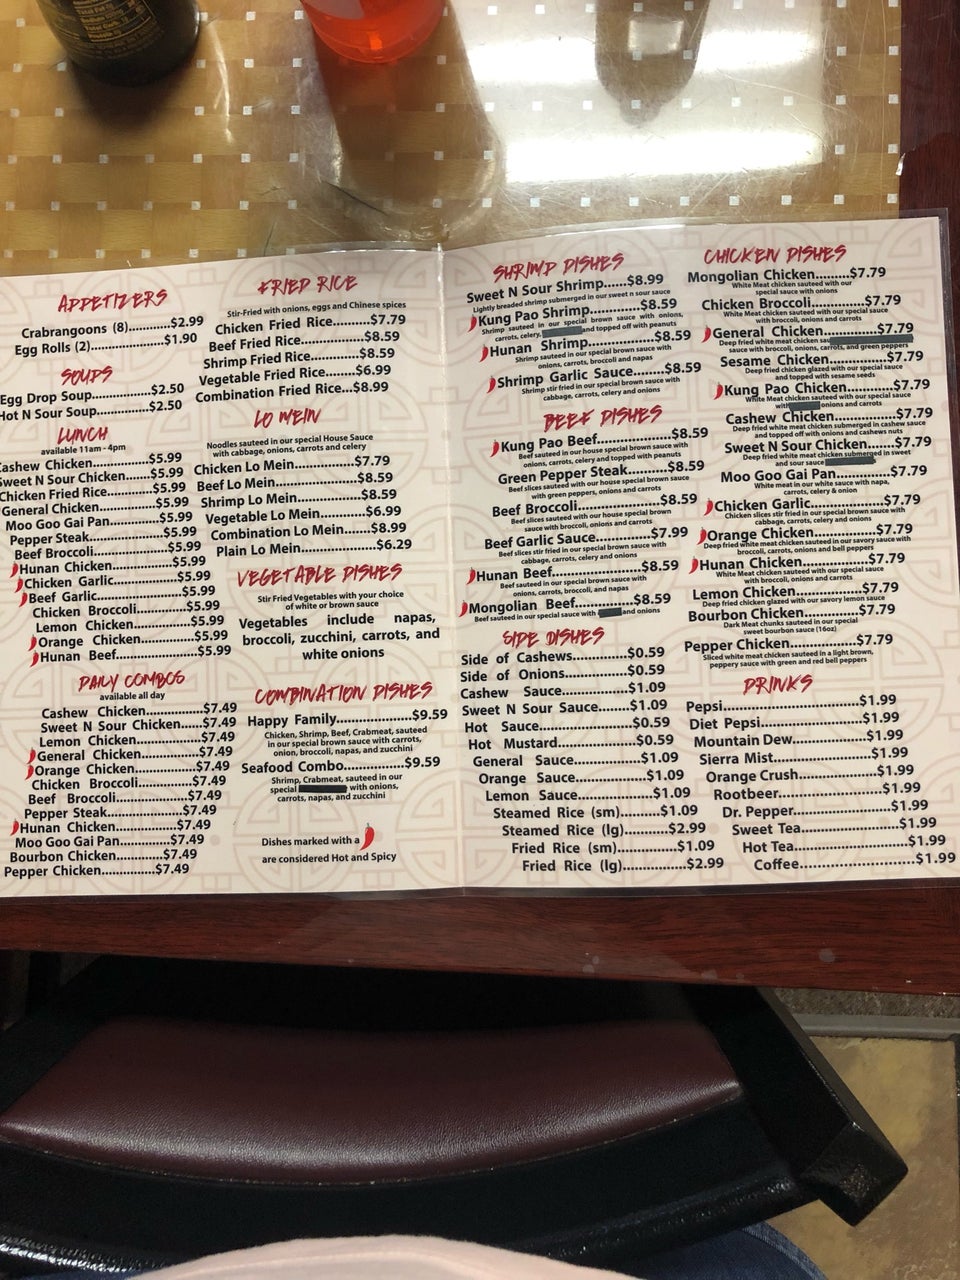 APPETIZERS
Crabrangoons (8)............$2.99
Egg Rolls (2).......................$1.90
SOUPS
Egg Drop Soup.............$2.50
Hot N Sour Soup...........$2.50
LUNCH
available 11am - 4pm
Cashew Chicken.............$5.99
Sweet N Sour Chicken.....$5.99
Chicken Fried Rice...........$5.99
General Chicken.............$5.99
Moo Goo Gai Pan...........$5.99
Pepper Steak..................$5.99
Beef Broccoli..................$5.99
Hunan Chicken...............$5.99
Chicken Garlic................$5.99
Beef Garlic.....................$5.99
Chicken Broccoli.............$5.99
Lemon Chicken..............$5.99
Orange Chicken.............$5.99
Hunan Beef....................$5.99
DAILY COMBOS
available all day
Cashew Chicken..............$7.49
Sweet N Sour Chicken.....$7.49
Lemon Chicken...............$7.49
General Chicken.............$7.49
Orange Chicken..............$7.49
Chicken Broccoli.............$7.49
Beef Broccoli..................$7.49
Pepper Steak..................$7.49
Hunan Chicken...............$7.49
Moo Goo Gai Pan...........$7.49
Bourbon Chicken............$7.49
Pepper Chicken..............$7.49
FRIED RICE
Stir-Fried with onions, eggs and Chinese spices
Chicken Fried Rice...........$7.79
Beef Fried Rice...............$8.59
Shrimp Fried Rice............$8.59
Vegetable Fried Rice........$6.99
Combination Fried Rice...$8.99
LO MEIN
Noodles sauteed in our special House Sauce
with cabbage, onions, carrots and celery
Chicken Lo Mein.............$7.79
Beef Lo Mein..................$8.59
Shrimp Lo Mein..............$8.59
Vegetable Lo Mein..........$6.99
Combination Lo Mein......$8.99
Plain Lo Mein.................$6.29
VEGETABLE DISHES
Stir Fried Vegetables with your choice
of white or brown sauce
Vegetables include napas,
broccoli, zucchini, carrots, and
white onions
COMBINATION DISHES
Happy Family..................$9.59
Chicken, Shrimp, Beef, Crabmeat, sauteed
in our special brown sauce with carrots,
onion, broccoli, napas, and zucchini
Seafood Combo...............$9.59
Shrimp, Crabmeat, sauteed in our
special with onions,
carrots, napas, and zucchini
Dishes marked with a
are considered Hot and Spicy
SHRIMP DISHES
Sweet N Sour Shrimp......$8.99
Lightly breaded shrimp submerged in our sweet n sour sauce
Kung Pao Shrimp............$8.59
Shrimp sauteed in our special brown sauce with onions,
carrots, celery, and topped off with peanuts
Hunan Shrimp................$8.59
Shrimp sauteed in our special brown sauce with
onions, carrots, broccoli and napas
Shrimp Garlic Sauce........$8.59
Shrimp stir fried in our special brown sauce with
cabbage, carrots, celery and onions
BEEF DISHES
Kung Pao Beef................$8.59
Beef sauteed in our house special brown sauce with
onions, carrots, celery and topped with peanuts
Green Pepper Steak........$8.59
Beef slices sauteed in our house special brown sauce
with green peppers, onions and carrots
Beef Broccoli..................$8.59
Beef slices sauteed in our house special brown
sauce with broccoli, onions and carrots
Beef Garlic Sauce............$7.99
Beef slices stir fried in our special brown sauce with
cabbage, carrots, celery and onions
Hunan Beef....................$8.59
Beef sauteed in our special brown sauce with
onions, carrots, broccoli and napas
Mongolian Beef..............$8.59
Beef sauteed in our special brown sauce with and onions
SIDE DISHES
Side of Cashews..............$0.59
Side of Onions................$0.59
Cashew Sauce................$1.09
Sweet N Sour Sauce........$1.09
Hot Sauce......................$0.59
Hot Mustard..................$0.59
General Sauce................$1.09
Orange Sauce................$1.09
Lemon Sauce.................$1.09
Steamed Rice (sm)..........$1.09
Steamed Rice (lg)............$2.99
Fried Rice (sm)...............$1.09
Fried Rice (lg).................$2.99
CHICKEN DISHES
Mongolian Chicken.........$7.79
White Meat chicken sauteed with our
special sauce with onions
Chicken Broccoli.............$7.79
White Meat chicken sauteed with our brown sauce
with broccoli, onions and carrots
General Chicken.............$7.79
Deep fried white meat chicken
sauce with broccoli, onions, carrots, and green peppers
Sesame Chicken..............$7.79
Deep fried chicken glazed with our special sauce
and topped with sesame seeds
Kung Pao Chicken...........$7.79
White Meat chicken sauteed with our brown sauce
with onions and carrots
Cashew Chicken..............$7.79
Deep fried white meat chicken submerged in cashew sauce
and topped off with onions and cashews nuts
Sweet N Sour Chicken.....$7.79
Deep fried white meat chicken submerged in sweet
and sour sauce
Moo Goo Gai Pan...........$7.79
White meat in our white sauce with napa,
carrots, celery & onion
Chicken Garlic................$7.79
Chicken slices stir fried in our special brown sauce with
cabbage, carrots, celery and onions
Orange Chicken..............$7.79
Deep fried white meat chicken sauteed in our savory sauce with
broccoli, carrots, onions and bell peppers
Hunan Chicken...............$7.79
White Meat chicken sauteed with our brown sauce
with broccoli, onions and carrots
Lemon Chicken...............$7.79
Deep fried chicken glazed with our savory lemon sauce
Bourbon Chicken............$7.79
Dark Meat chunks sauteed in our special
sweet bourbon sauce (16oz)
Pepper Chicken..............$7.79
Sliced white meat chicken sauteed in a light brown,
peppery sauce with green and red bell peppers
DRINKS
Pepsi.............................$1.99
Diet Pepsi......................$1.99
Mountain Dew...............$1.99
Sierra Mist.....................$1.99
Orange Crush.................$1.99
Rootbeer.......................$1.99
Dr. Pepper.....................$1.99
Sweet Tea......................$1.99
Hot Tea.........................$1.99
Coffee...........................$1.99